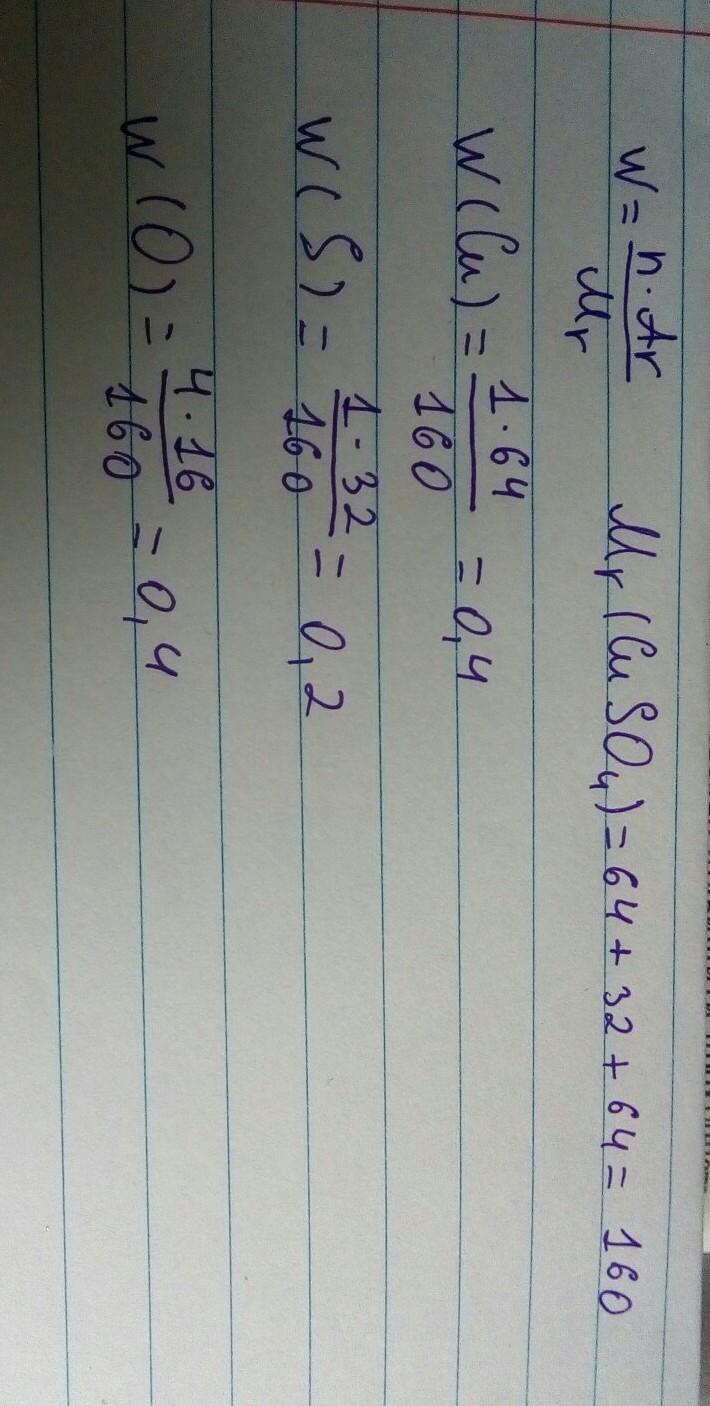 W = n · Ar / Mr    Mr (CuSO₄) = 64 + 32 + 64 = 160
W (Cu) = 1 · 64 / 160 = 0,4
W ( S ) = 1 · 32 / 160 = 0,2
W ( O ) = 4 · 16 / 160 = 0,4